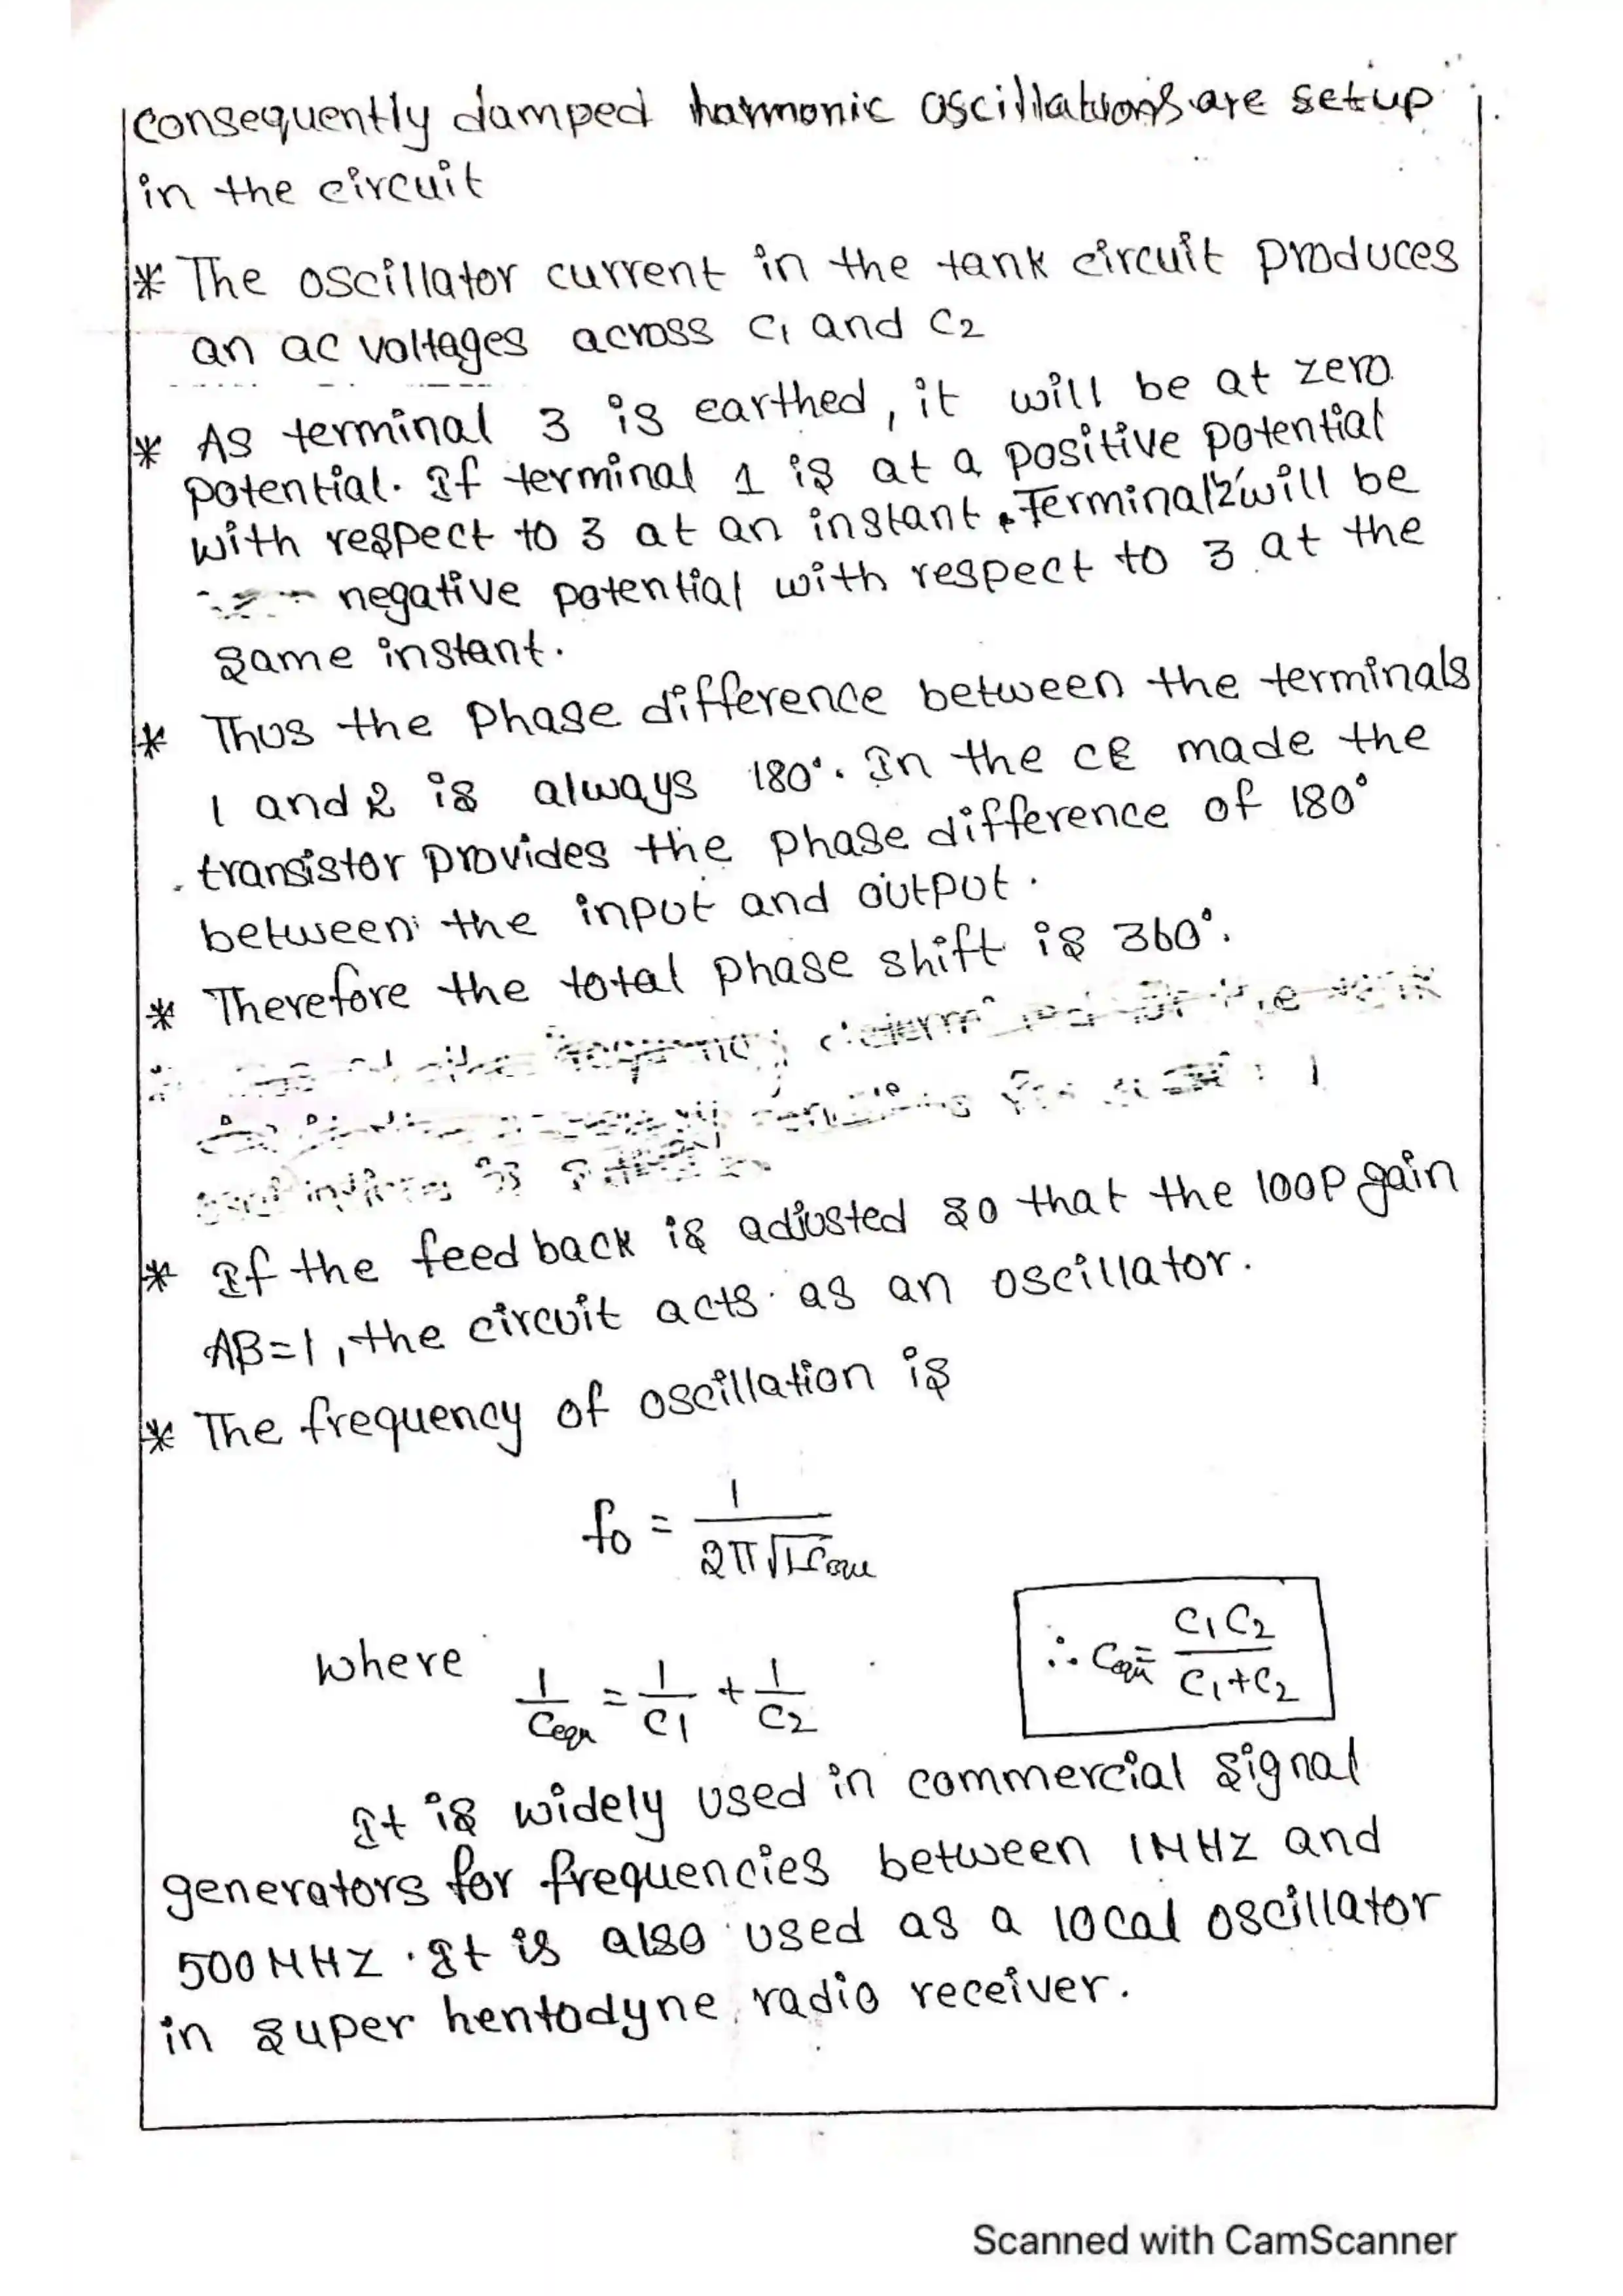 Consequently damped harmonic oscillations are setup
in the circuit
* The oscillator current in the tank circuit produces
an ac voltages across C1 and C2
* As terminal 3 is earthed, it will be at zero
potential. If terminal 1 is at a positive potential
with respect to 3 at an instant. Terminal '2' will be
negative potential with respect to 3 at the
same instant.
* Thus the Phase difference between the terminals
1 and 2 is always 180°. In the CE made the
transistor provides the phase difference of 180°
between the input and output.
* Therefore the total phase shift is 360°.
* If the feed back is adjusted so that the loop gain
AB=1, the circuit acts as an oscillator.
* The frequency of oscillation is
fo = 1 / 2π√LCequ
where 1/Cequ = 1/C1 + 1/C2
∴ Cequ = C1C2 / C1+C2
It is widely used in commercial signal
generators for frequencies between 1MHZ and
500MHZ. It is also used as a local oscillator
in super hentodyne radio receiver.
Scanned with CamScanner